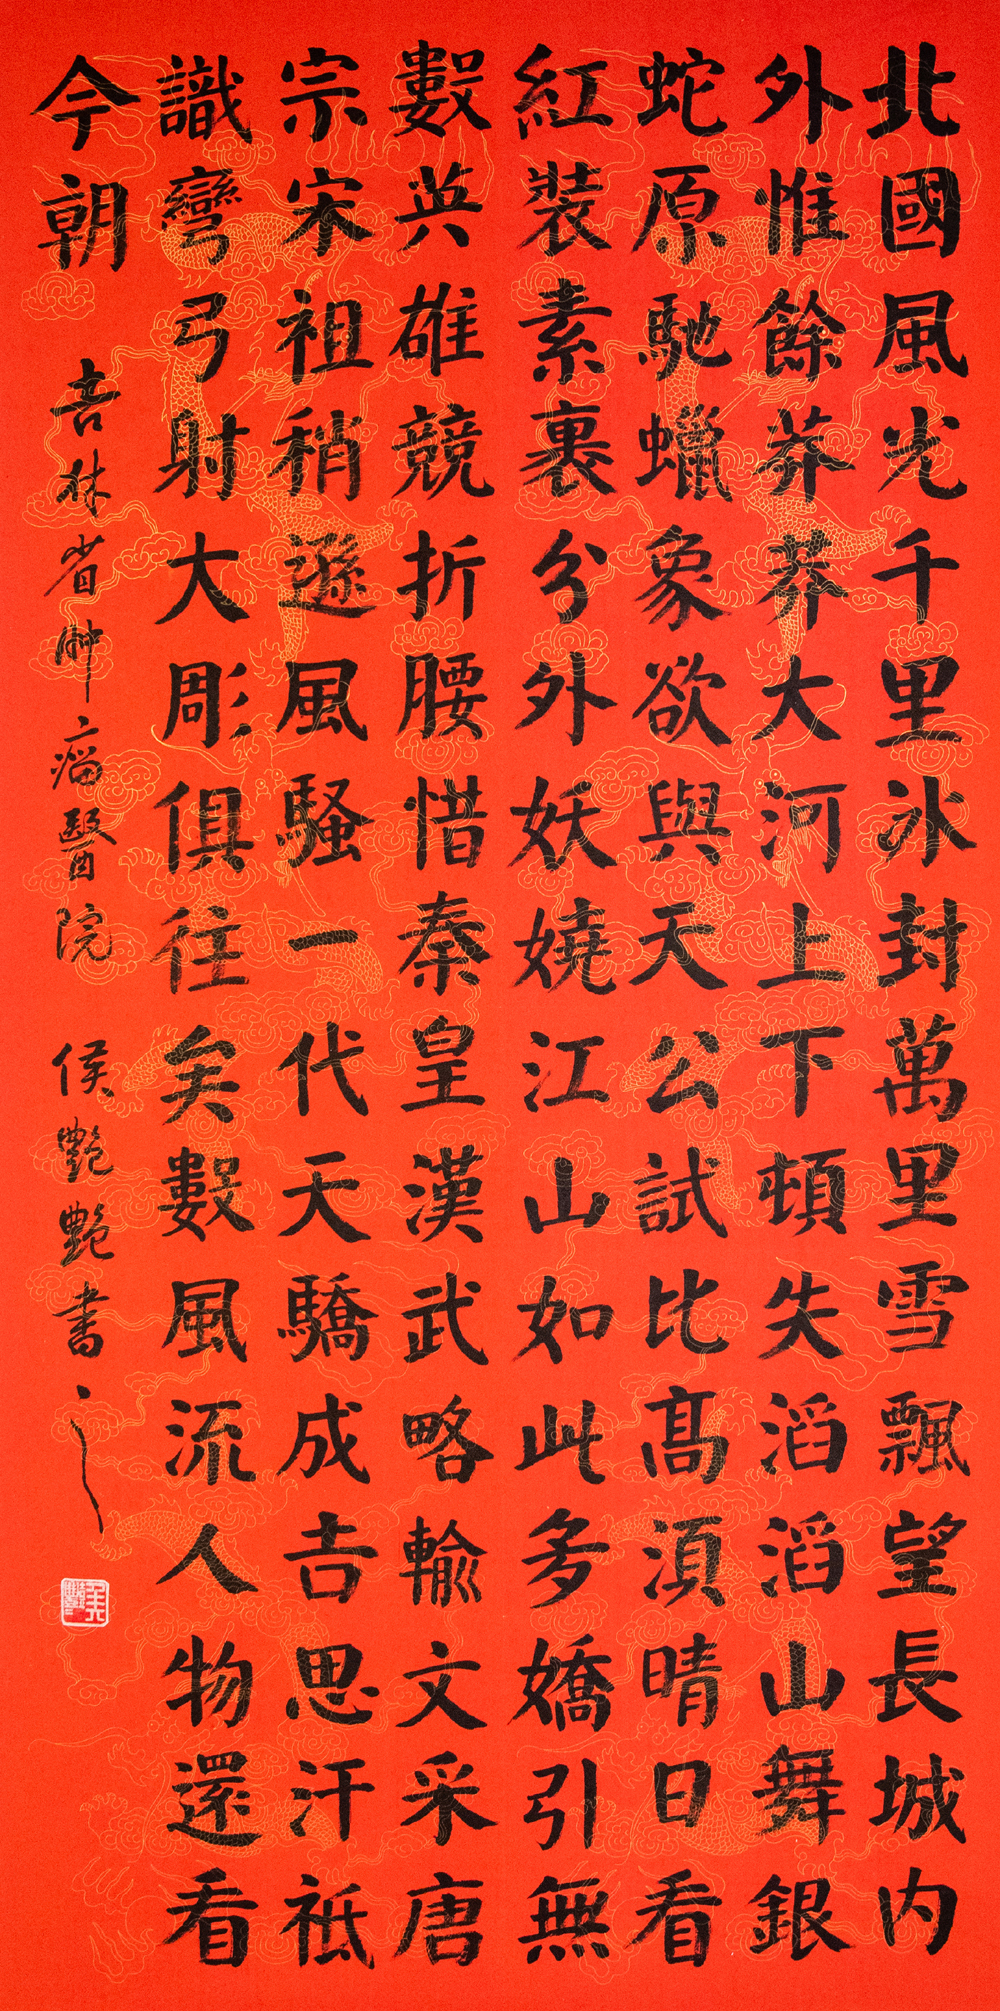 北國風光千里冰封萬里雪飄望長城内
外惟餘莽莽大河上下頓失滔滔山舞銀
蛇原馳蠟象欲與天公試比髙須晴日看
紅裝素裹分外妖嬈江山如此多嬌引無
數英雄競折腰惜秦皇漢武略輸文采唐
宗宋祖稍遜風騷一代天驕成吉思汗祗
識彎弓射大彫俱往矣數風流人物還看
今朝
吉林省肿瘤醫院 侯艷艷書